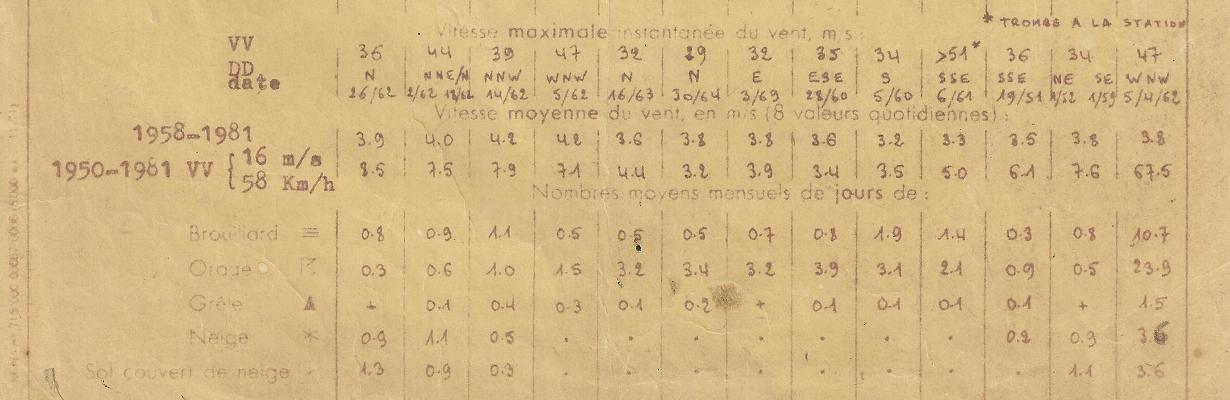 * TROMBE A LA STATION
Vitesse maximale instantanée du vent, m/s :
VV 36 44 39 47 32 29 32 35 34 >51* 36 34 47
DD N NNE/N NNW WNW N N E ESE S SSE SSE NE SE WNW
date 26/62 2/62 12/62 14/62 5/62 16/63 30/64 3/69 28/60 5/60 6/61 19/51 1/52 1/59 5/4/62
Vitesse moyenne du vent, en m/s (8 valeurs quotidiennes) :
1958-1981 3.9 4.0 4.2 4.2 3.6 3.8 3.8 3.6 3.2 3.3 3.5 3.8 3.8
1950-1981 VV { 16 m/s 58 Km/h 8.5 7.5 7.9 7.1 4.4 3.2 3.9 3.4 3.5 5.0 6.1 7.6 67.5
Nombres moyens mensuels de jours de :
Brouillard ≡ 0.8 0.9 1.1 0.5 0.5 0.5 0.7 0.8 1.9 1.4 0.3 0.8 10.7
Orage 0.3 0.6 1.0 1.5 3.2 3.4 3.2 3.9 3.1 2.1 0.9 0.5 23.9
Grêle ▲ + 0.1 0.4 0.3 0.1 0.2 + 0.1 0.1 0.1 0.1 + 1.5
Neige * 0.9 1.1 0.5 . . . . . . . 0.2 0.9 3.6
Sol couvert de neige 1.3 0.9 0.3 . . . . . . . . 1.1 3.6